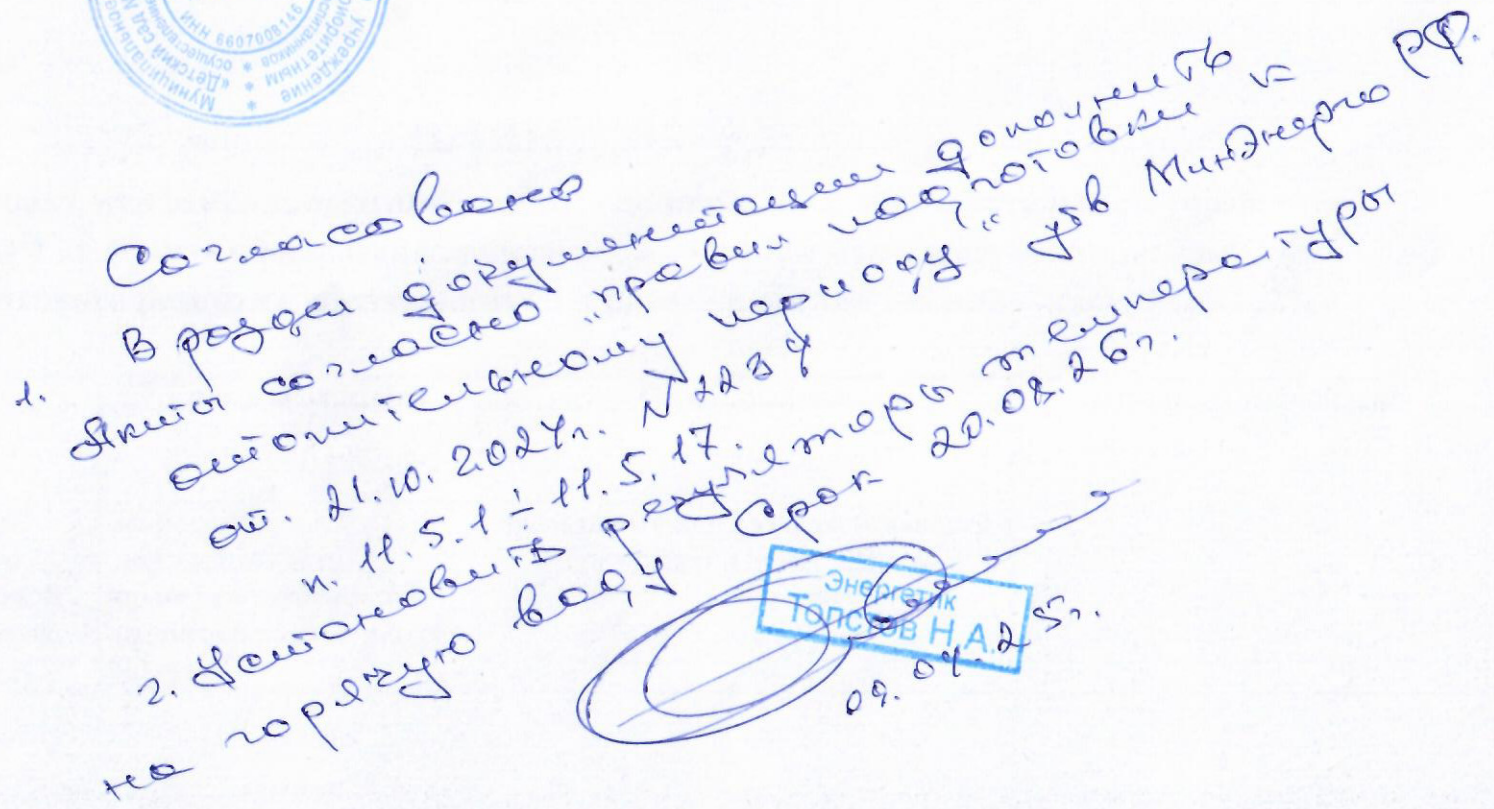 Муниципальное
учреждение
«Детский сад
приоритетным
осуществлением
воспитанников
ИНН 6607008146
Согласовано
1. В раздел документации дополнить
Акты согласно „правил подготовки к
отопительному периоду“ утв МинЭнерго РФ.
от. 21.10.2024г. N 2234
п. 11.5.1 ÷ 11.5.17.
2. Установить регуляторы температуры
на горячую воду Срок 20.08.26г.
Энергетик
Толстов Н.А.
09.04.25г.